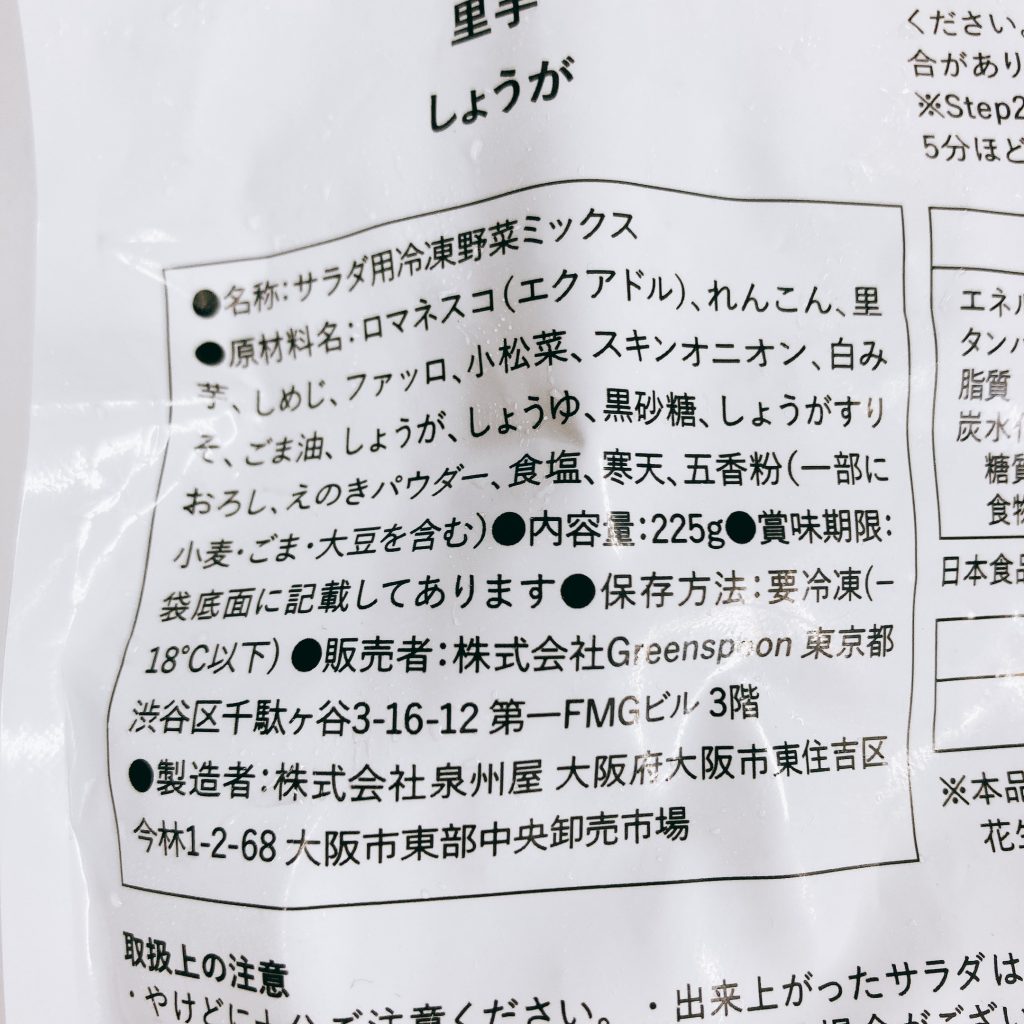 里芋
しょうが
ください。
合があり
※Step2
5分ほど
●名称:サラダ用冷凍野菜ミックス
●原材料名:ロマネスコ(エクアドル)、れんこん、里
芋、しめじ、ファッロ、小松菜、スキンオニオン、白み
そ、ごま油、しょうが、しょうゆ、黒砂糖、しょうがすり
おろし、えのきパウダー、食塩、寒天、五香粉(一部に
小麦・ごま・大豆を含む)●内容量:225g●賞味期限:
袋底面に記載してあります●保存方法:要冷凍(−
18℃以下)●販売者:株式会社Greenspoon 東京都
渋谷区千駄ヶ谷3-16-12 第一FMGビル 3階
●製造者:株式会社泉州屋 大阪府大阪市東住吉区
今林1-2-68 大阪市東部中央卸売市場
エネル
タンパ
脂質
炭水化
糖質
食物
日本食品
※本品
花生
取扱上の注意
・やけどに十分ご注意ください。・出来上がったサラダは